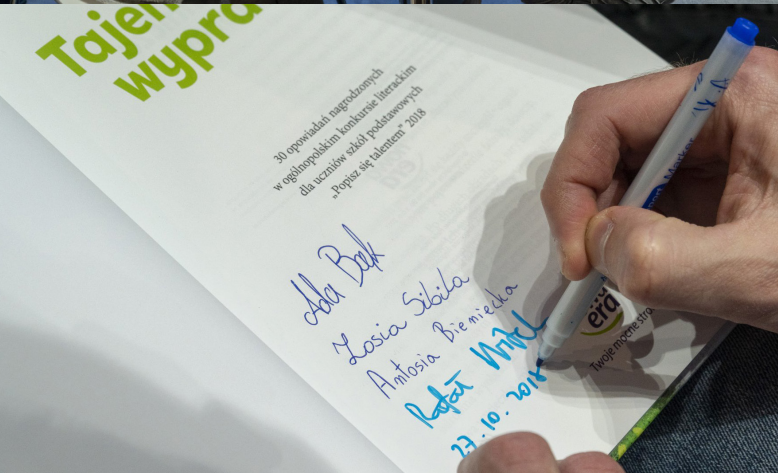 Tajem
wypra
30 opowiadań nagrodzonych
w ogólnopolskim konkursie literackim
dla uczniów szkół podstawowych
„Popisz się talentem” 2018
Ada Bąk
Zosia Sibila
Antosia Bieniecka
Rafał Witek
27.10.2018
era
Twoje mocne stro
Marker